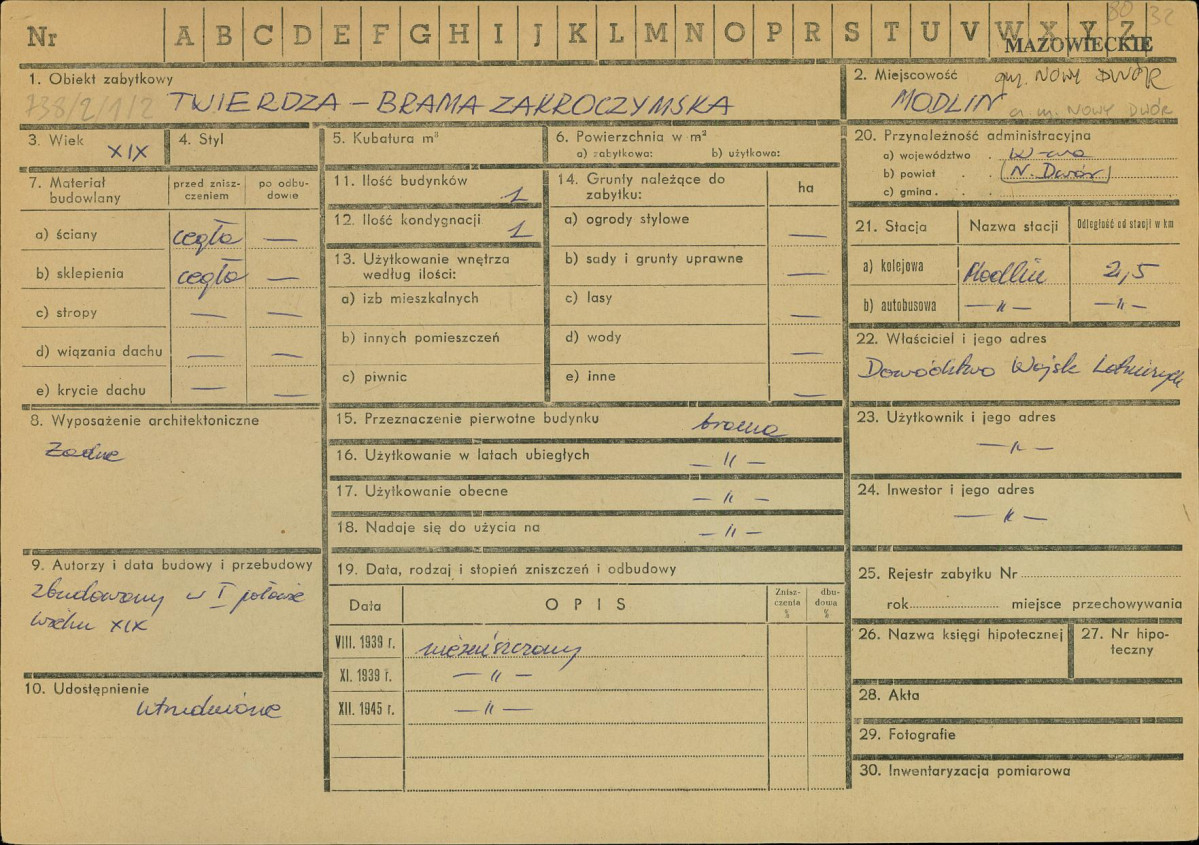 80 32
Nr A B C D E F G H I J K L M N O P R S T U V W X Y Z
MAZOWIECKIE
1. Obiekt zabytkowy
738/2/1/2 TWIERDZA – BRAMA ZAKROCZYMSKA
2. Miejscowość gm. NOWY DWÓR
MODLIN g. m. NOWY DWÓR
3. Wiek XIX
4. Styl
5. Kubatura m³
6. Powierzchnia w m²
a) zabytkowa: b) użytkowa:
7. Materiał budowlany
przed zniszczeniem
po odbudowie
a) ściany cegła —
b) sklepienia cegła —
c) stropy — —
d) wiązania dachu — —
e) krycie dachu —
8. Wyposażenie architektoniczne
żadne
9. Autorzy i data budowy i przebudowy
zbudowany w I połowie
wieku XIX
10. Udostępnienie
utrudnione
11. Ilość budynków 1
12. Ilość kondygnacji 1
13. Użytkowanie wnętrza
według ilości:
a) izb mieszkalnych
b) innych pomieszczeń
c) piwnic
14. Grunty należące do
zabytku:
ha
a) ogrody stylowe —
b) sady i grunty uprawne —
c) lasy —
d) wody —
e) inne —
15. Przeznaczenie pierwotne budynku brama
16. Użytkowanie w latach ubiegłych — " —
17. Użytkowanie obecne — " —
18. Nadaje się do użycia na — " —
19. Data, rodzaj i stopień zniszczeń i odbudowy
Data OPIS Zniszczenia % dbudowa %
VIII. 1939 r. niezniszczony
XI. 1939 r. — " —
XII. 1945 r. — " —
20. Przynależność administracyjna
a) województwo . W-wa
b) powiat . . N. Dwór
c) gmina . .
21. Stacja Nazwa stacji Odległość od stacji w km
a) kolejowa Modlin 2,5
b) autobusowa — " — — " —
22. Właściciel i jego adres
Dowództwo Wojsk Lotniczych
23. Użytkownik i jego adres
— " —
24. Inwestor i jego adres
— " —
25. Rejestr zabytku Nr
rok miejsce przechowywania
26. Nazwa księgi hipotecznej
27. Nr hipoteczny
28. Akta
29. Fotografie
30. Inwentaryzacja pomiarowa